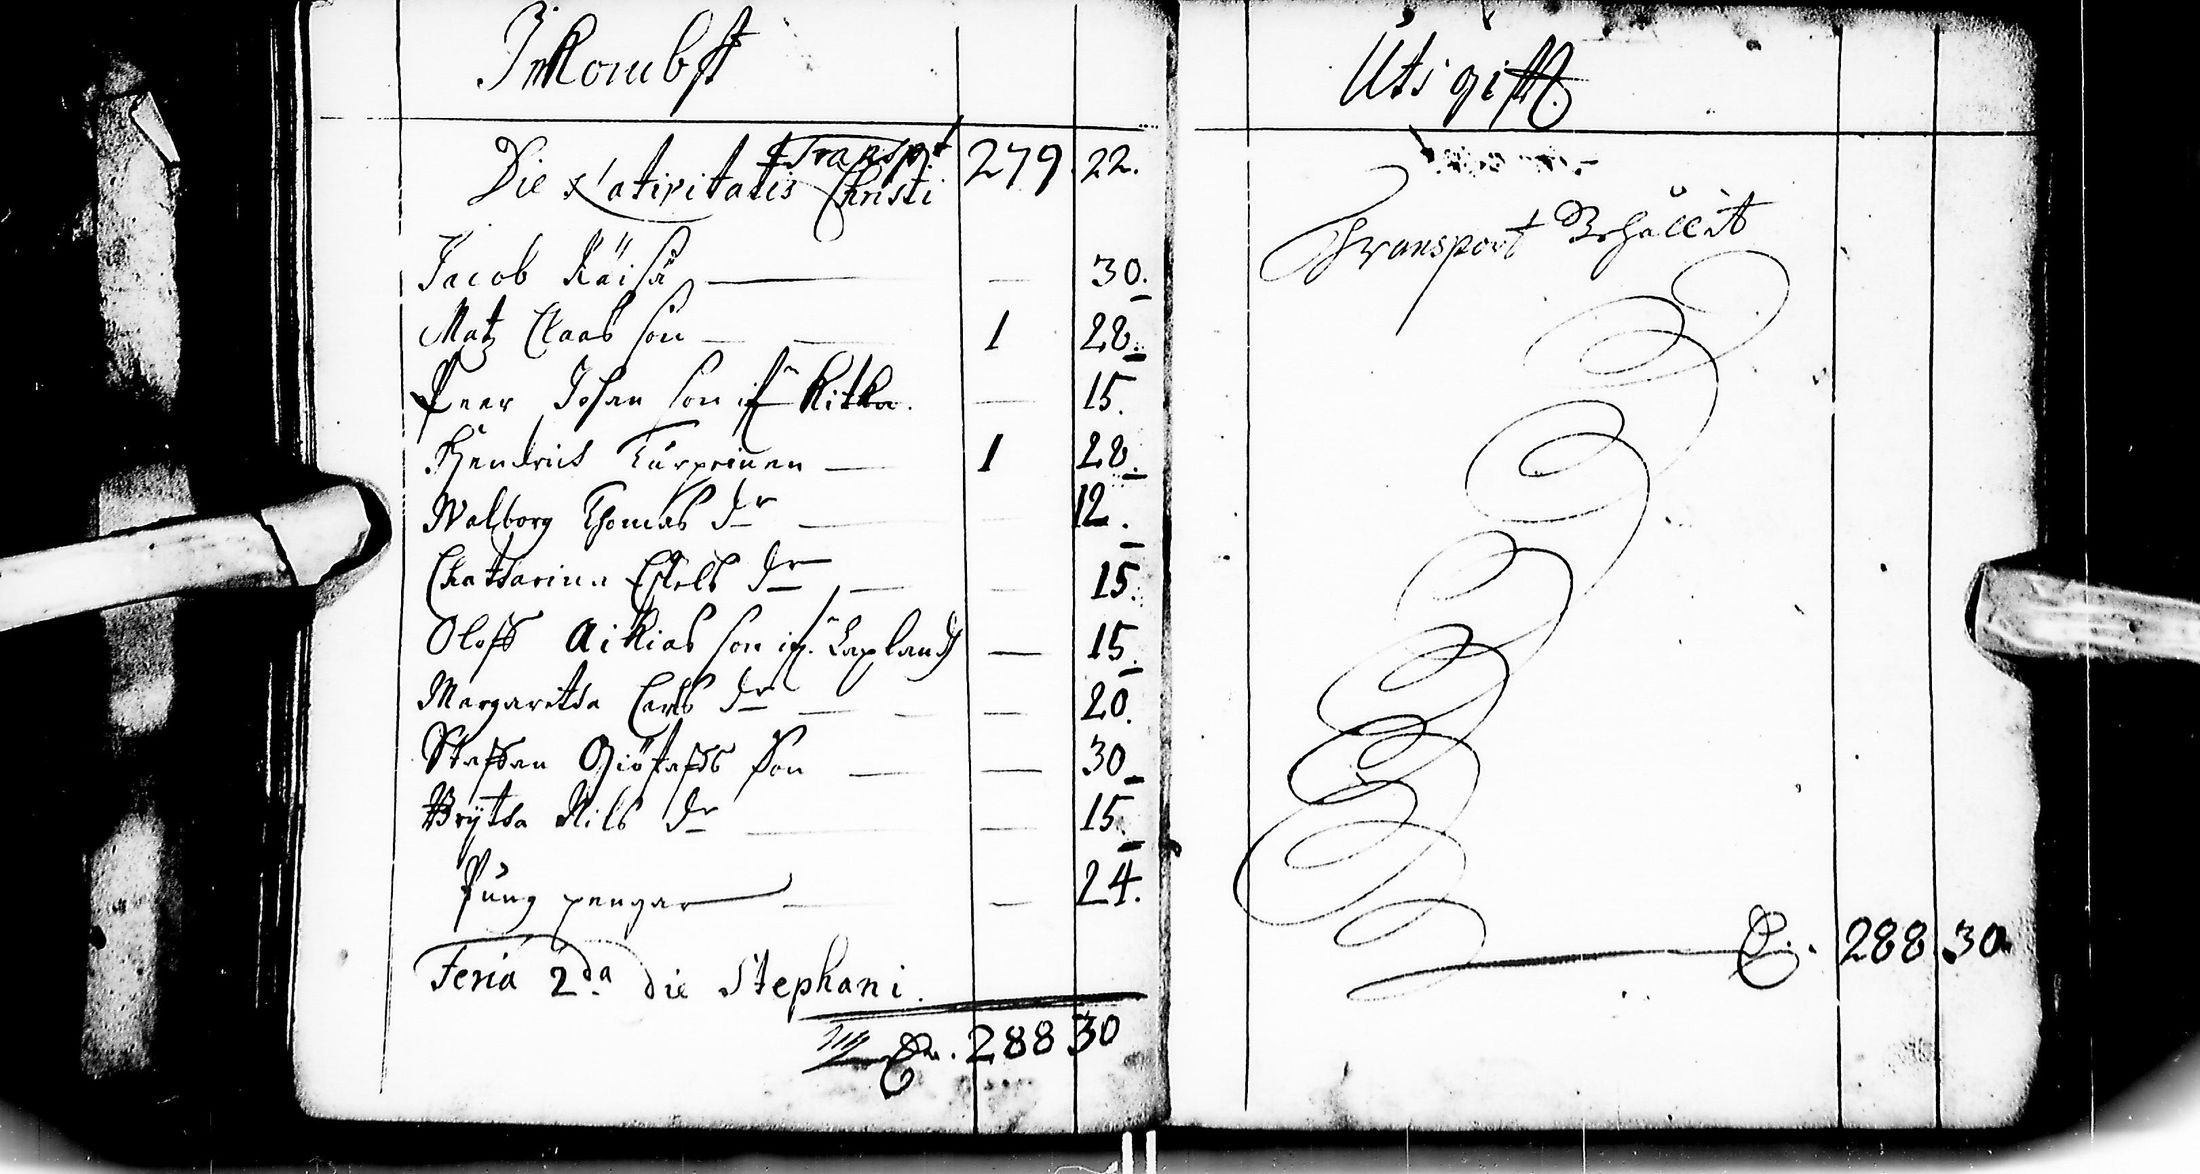 Inkombst
Transpt 279 22.
Die Nativitatis Christi
Jacob Räisä — — 30.
Matz Claas son — 1 28.
Peer Johan son if Kitka. — 15.
Hendrich Turpeinen — 1 28.
Walborg Thomas dr — 12.
Chatharina Eskels dr — — 15.
Oloff Aikias son if Laplandh — 15.
Margaretha Carls dr — — 20.
Staffan Giötaffs Son — — 30
Brytha Nils dr — — 15.
Pung pengar — — 24.
Feria 2da die Stephani.
288 30
Utsgifft.
Transport Behållit
288 30